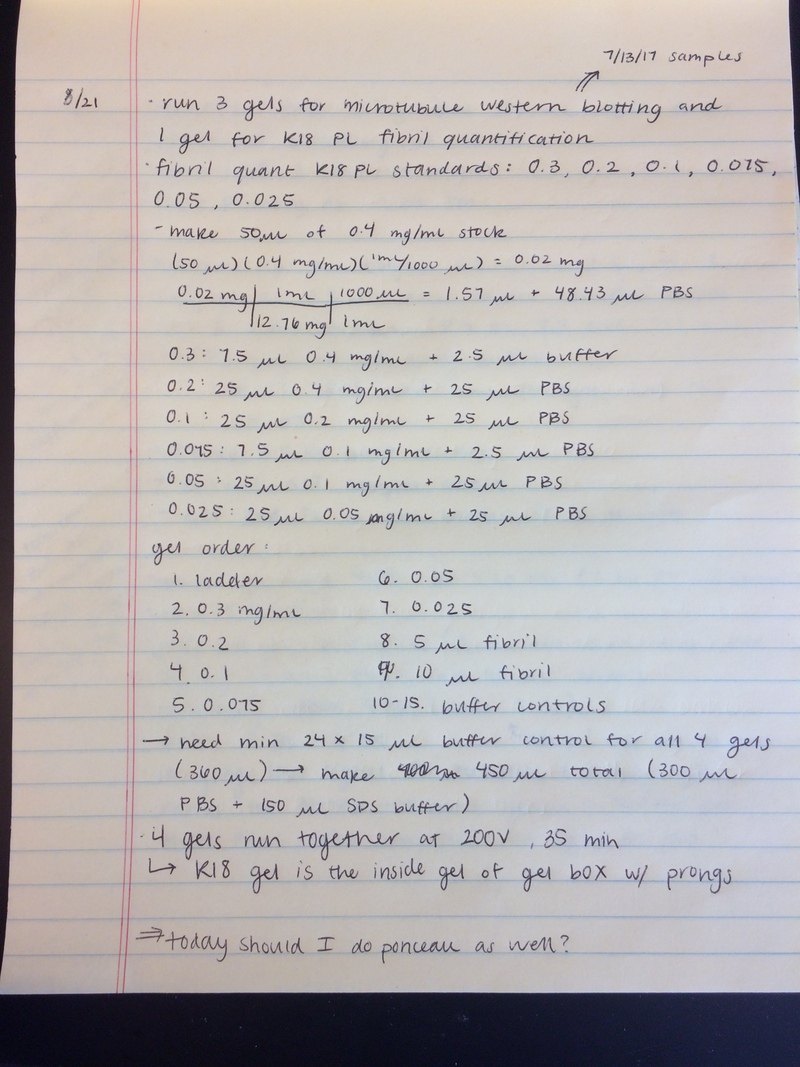 7/13/17 samples
8/21 · run 3 gels for microtubule western blotting and
1 gel for K18 PL fibril quantification
· fibril quant K18 PL standards: 0.3, 0.2, 0.1, 0.075,
0.05, 0.025
- make 50 µL of 0.4 mg/mL stock
(50 µL)(0.4 mg/mL)(1mL/1000 µL) = 0.02 mg
0.02 mg | 1mL | 1000 µL = 1.57 µL + 48.43 µL PBS
| 12.76 mg | 1mL
0.3: 7.5 µL 0.4 mg/mL + 2.5 µL buffer
0.2: 25 µL 0.4 mg/mL + 25 µL PBS
0.1: 25 µL 0.2 mg/mL + 25 µL PBS
0.075: 7.5 µL 0.1 mg/mL + 2.5 µL PBS
0.05: 25 µL 0.1 mg/mL + 25 µL PBS
0.025: 25 µL 0.05 mg/mL + 25 µL PBS
gel order:
1. ladder
2. 0.3 mg/mL
3. 0.2
4. 0.1
5. 0.075
6. 0.05
7. 0.025
8. 5 µL fibril
9. 10 µL fibril
10-15. buffer controls
→ need min 24 x 15 µL buffer control for all 4 gels
(360 µL) → make 450 µL total (300 µL
PBS + 150 µL SDS buffer)
· 4 gels run together at 200V, 35 min
↳ K18 gel is the inside gel of gel box w/ prongs
⇒ today should I do ponceau as well?